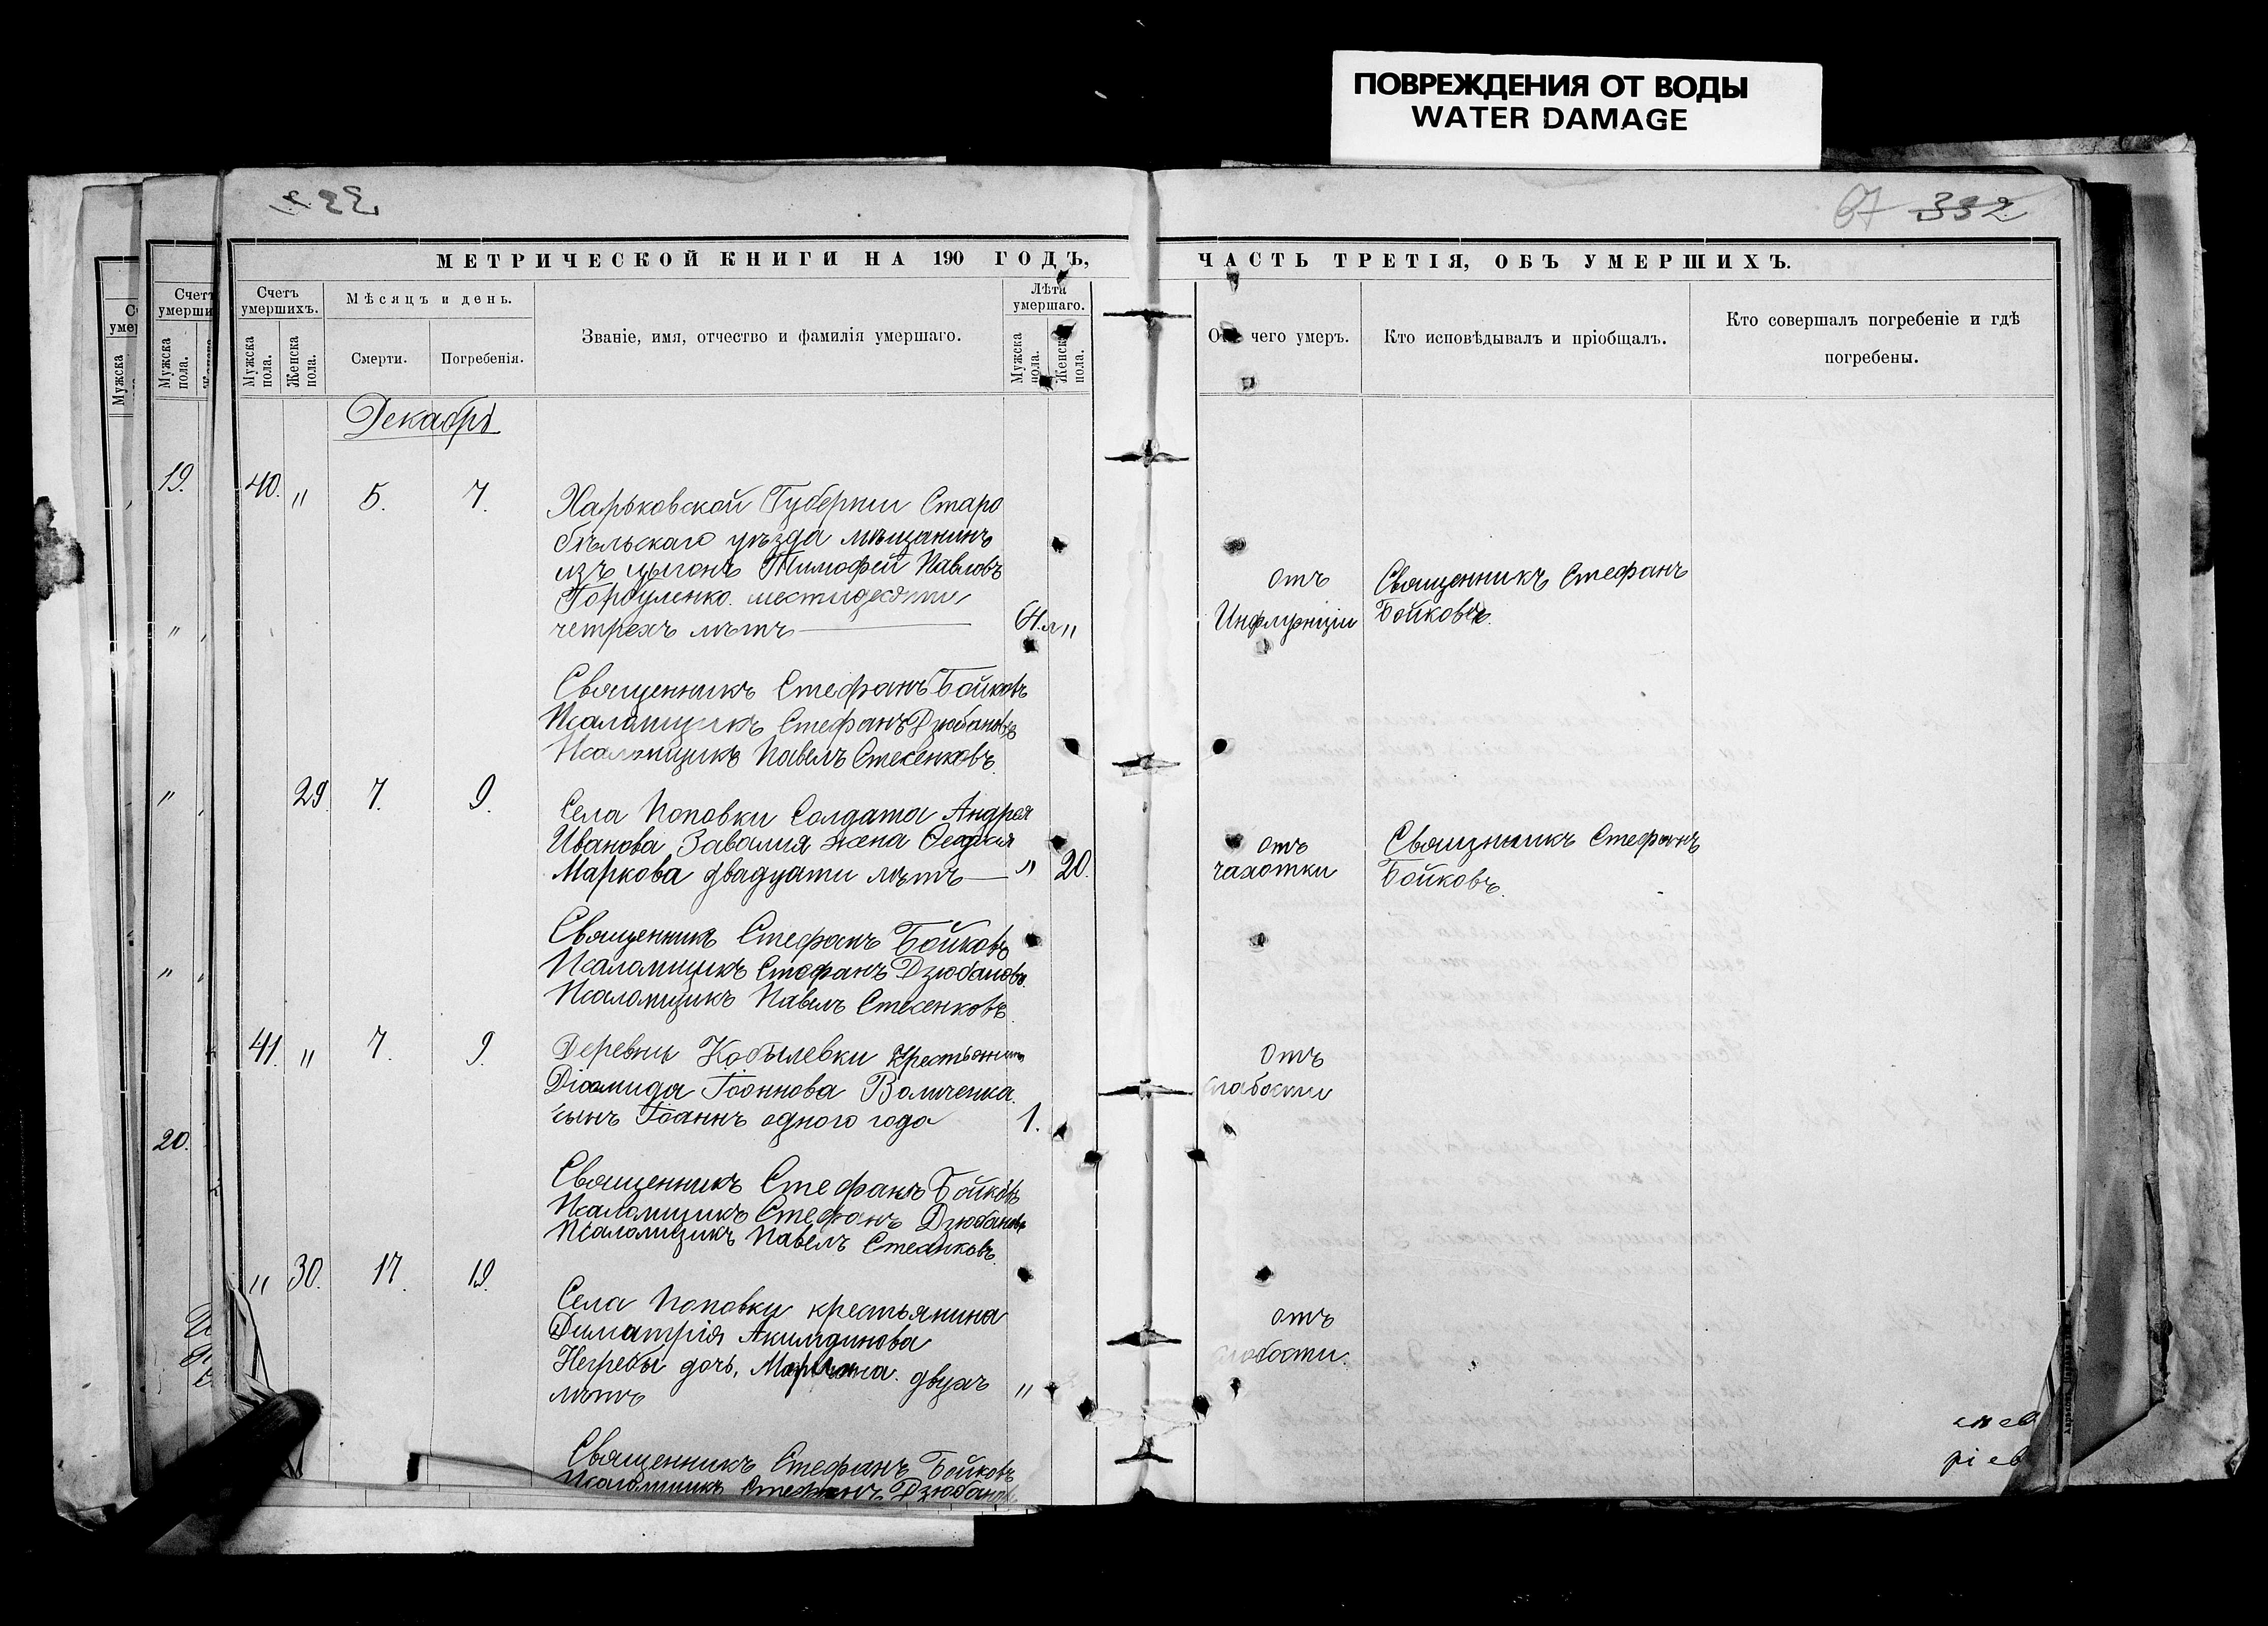 ПОВРЕЖДЕНИЯ ОТ ВОДЫ
WATER DAMAGE
67 332
МЕТРИЧЕСКОЙ КНИГИ НА 190 ГОДЪ,
ЧАСТЬ ТРЕТІЯ, ОБЪ УМЕРШИХЪ.
Счетъ умершихъ.
Мѣсяцъ и день.
Званіе, имя, отчество и фамилія умершаго.
Лѣта умершаго.
Мужска пола.
Женска пола.
Смерти.
Погребенія.
Мужска пола.
Женска пола.
Отъ чего умеръ.
Кто исповѣдывалъ и пріобщалъ.
Кто совершалъ погребеніе и гдѣ
погребены.
Декабрь
19.
40. " 5. 7.
Харьковской Губерніи Старо
бѣльскаго уѣзда мѣщанинъ
изъ цыганъ Тимофей Павловъ
шестидесяти
четрехъ лѣтъ 64.л "
отъ
Инфлуэнціи
Священникъ Стефанъ
Бойковъ.
Священникъ Стефанъ Бойковъ
Псаломщикъ Стефанъ Дзюбановъ
Псаломщикъ Павелъ Стесенковъ.
29. 7. 9.
Села Поповки Солдата Андрея
Иванова Завалія жена
Маркова двадцати лѣтъ " 20.
отъ
чахотки
Священникъ Стефанъ
Бойковъ.
Священникъ Стефанъ Бойковъ
Псаломщикъ Стефанъ Дзюбановъ.
Псаломщикъ Павелъ Стесенковъ.
41. " 7. 9.
Деревни Кобылевки крестьянина
Діомида Іоаннова Волченка.
сынъ Іоаннъ одного года 1.
отъ
слабости
20.
Священникъ Стефанъ Бойковъ
Псаломщикъ Стефанъ Дзюбановъ
Псаломщикъ Павелъ
" 30. 17. 19.
Села Поповки крестьянина
Димитрія
Негребы дочь, двухъ "
лѣтъ
отъ
слабости.
Священникъ Стефанъ Бойковъ
Псаломщикъ Стефанъ Дзюбановъ